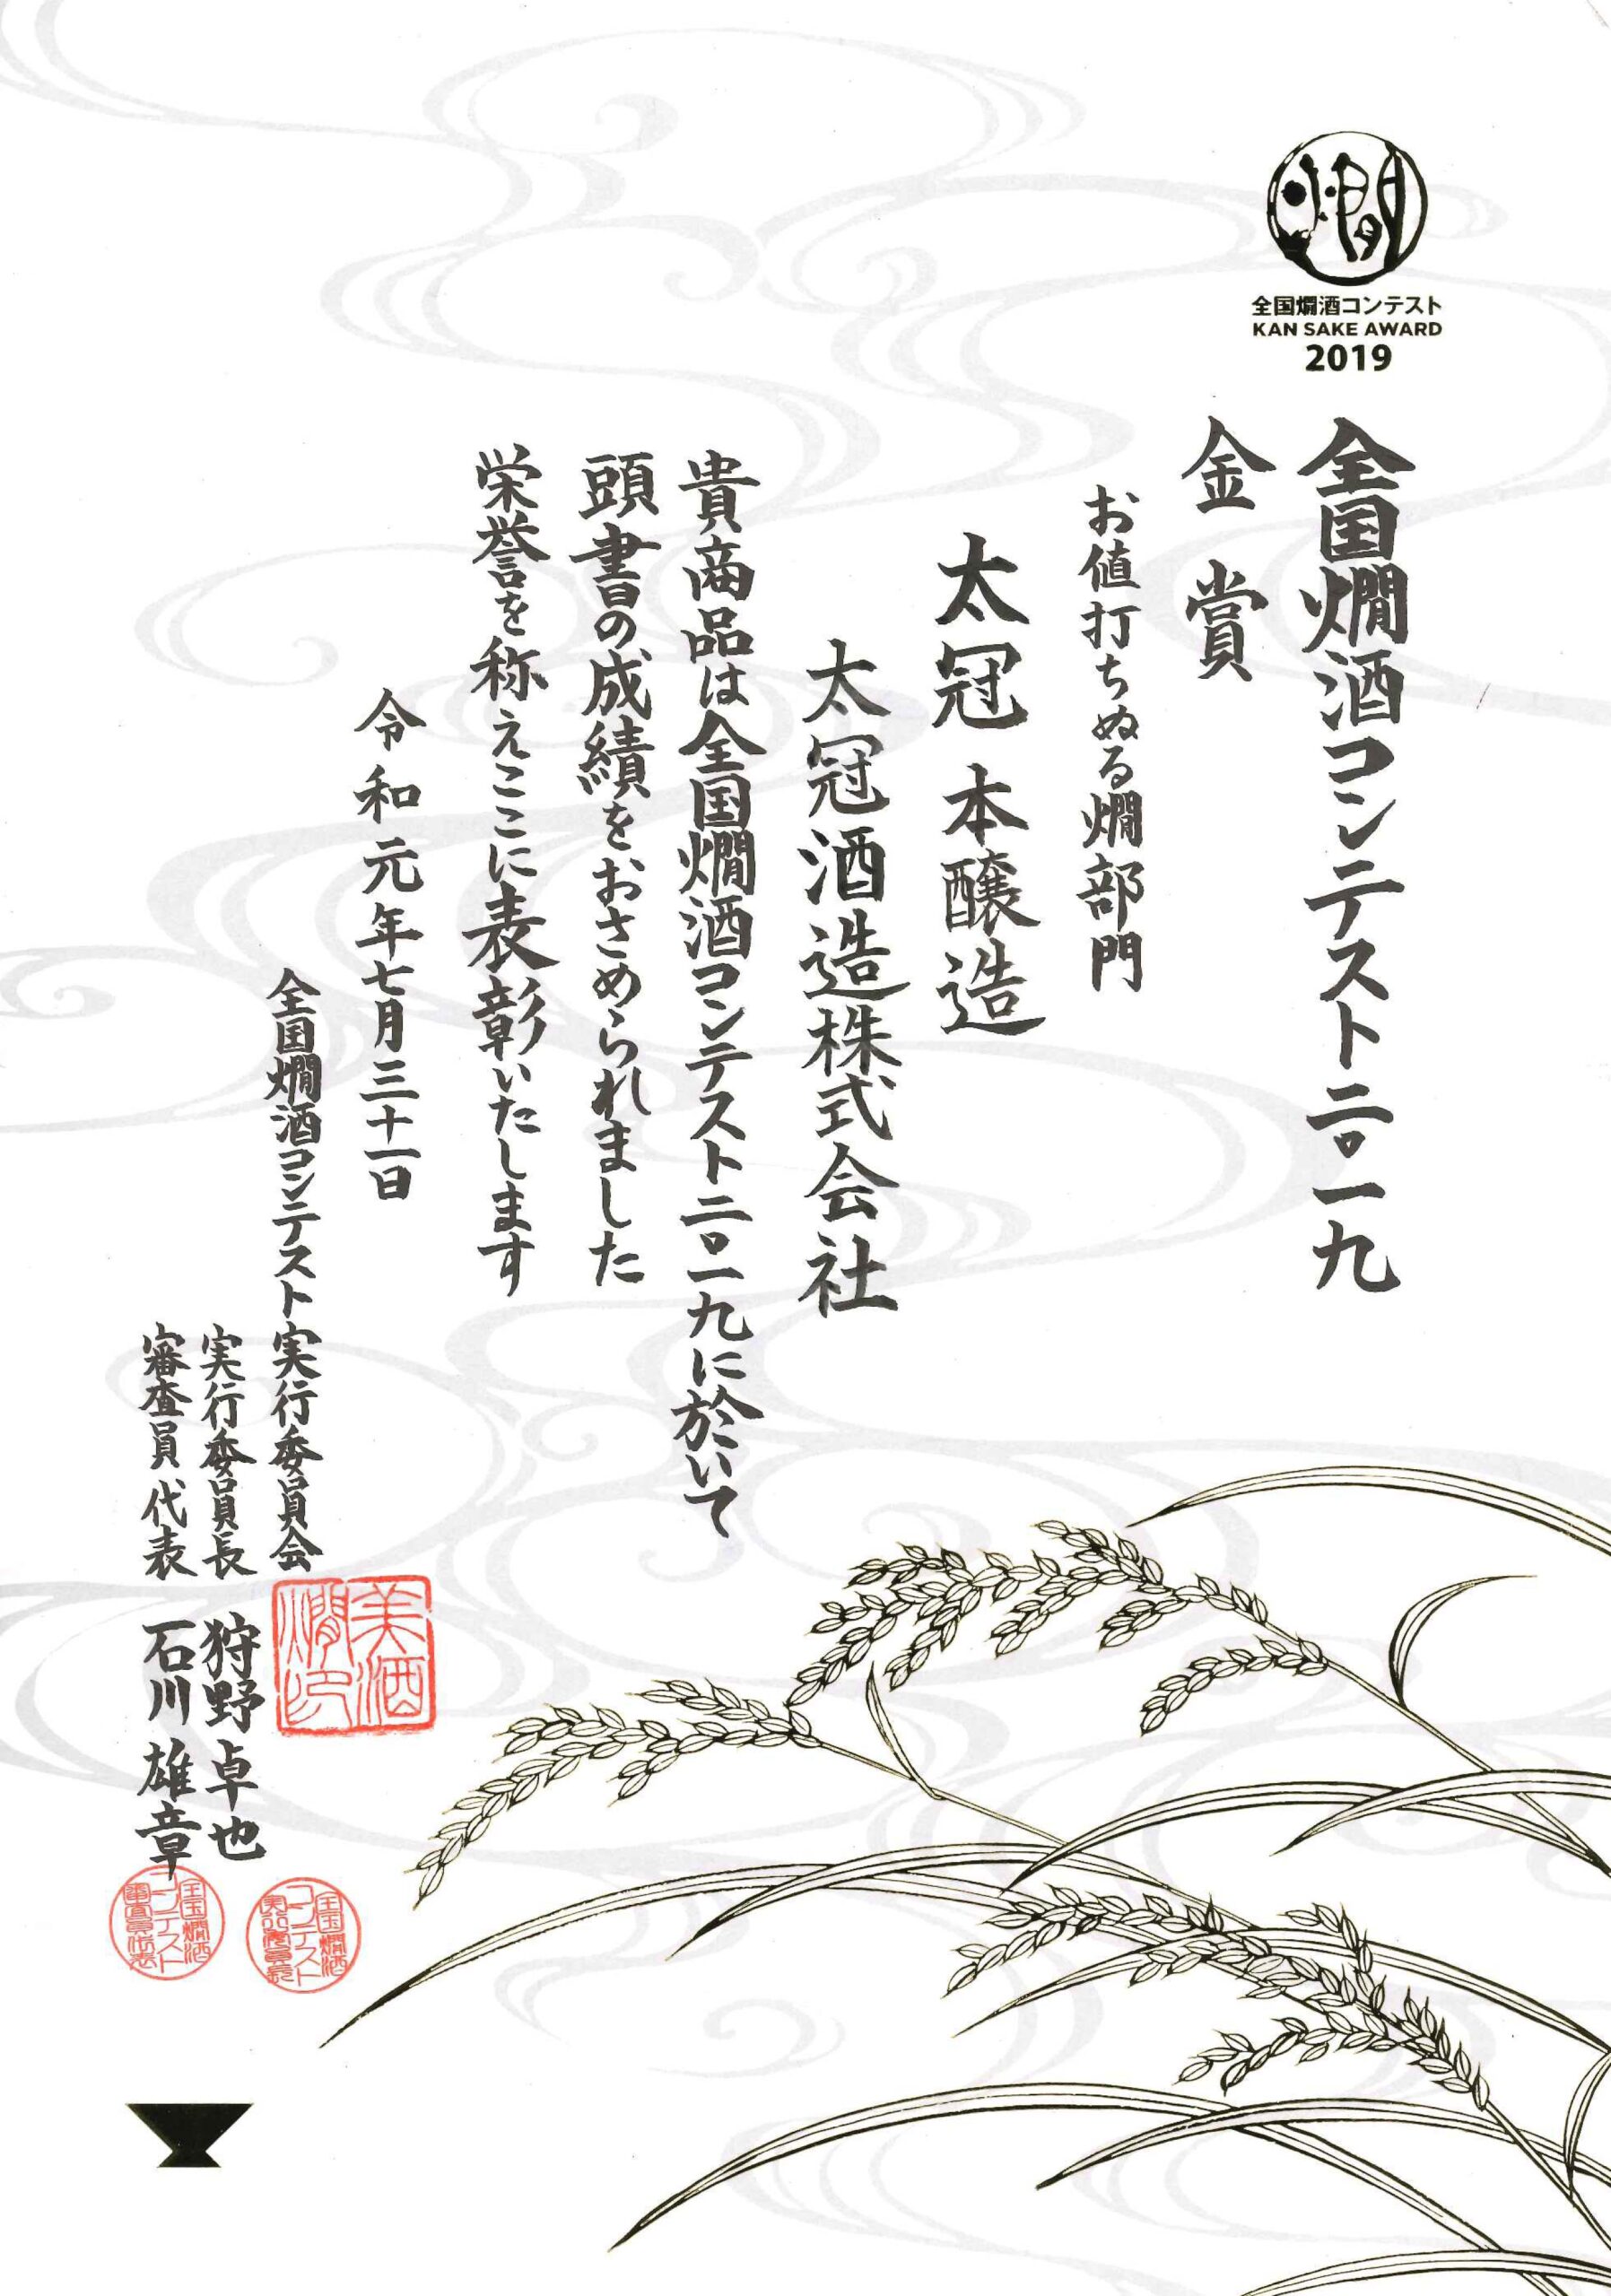 燗
全国燗酒コンテスト
KAN SAKE AWARD
2019
全国燗酒コンテスト二〇一九
金賞
お値打ちぬる燗部門
太冠 本醸造
太冠酒造株式会社
貴商品は全国燗酒コンテスト二〇一九に於いて
頭書の成績をおさめられました
栄誉を称えここに表彰いたします
令和元年七月三十一日
全国燗酒コンテスト実行委員会
実行委員長 狩野卓也
審査員代表 石川雄章
美酒
燗印
全国燗酒
コンテスト
実行委員長
全国燗酒
コンテスト
審査員代表